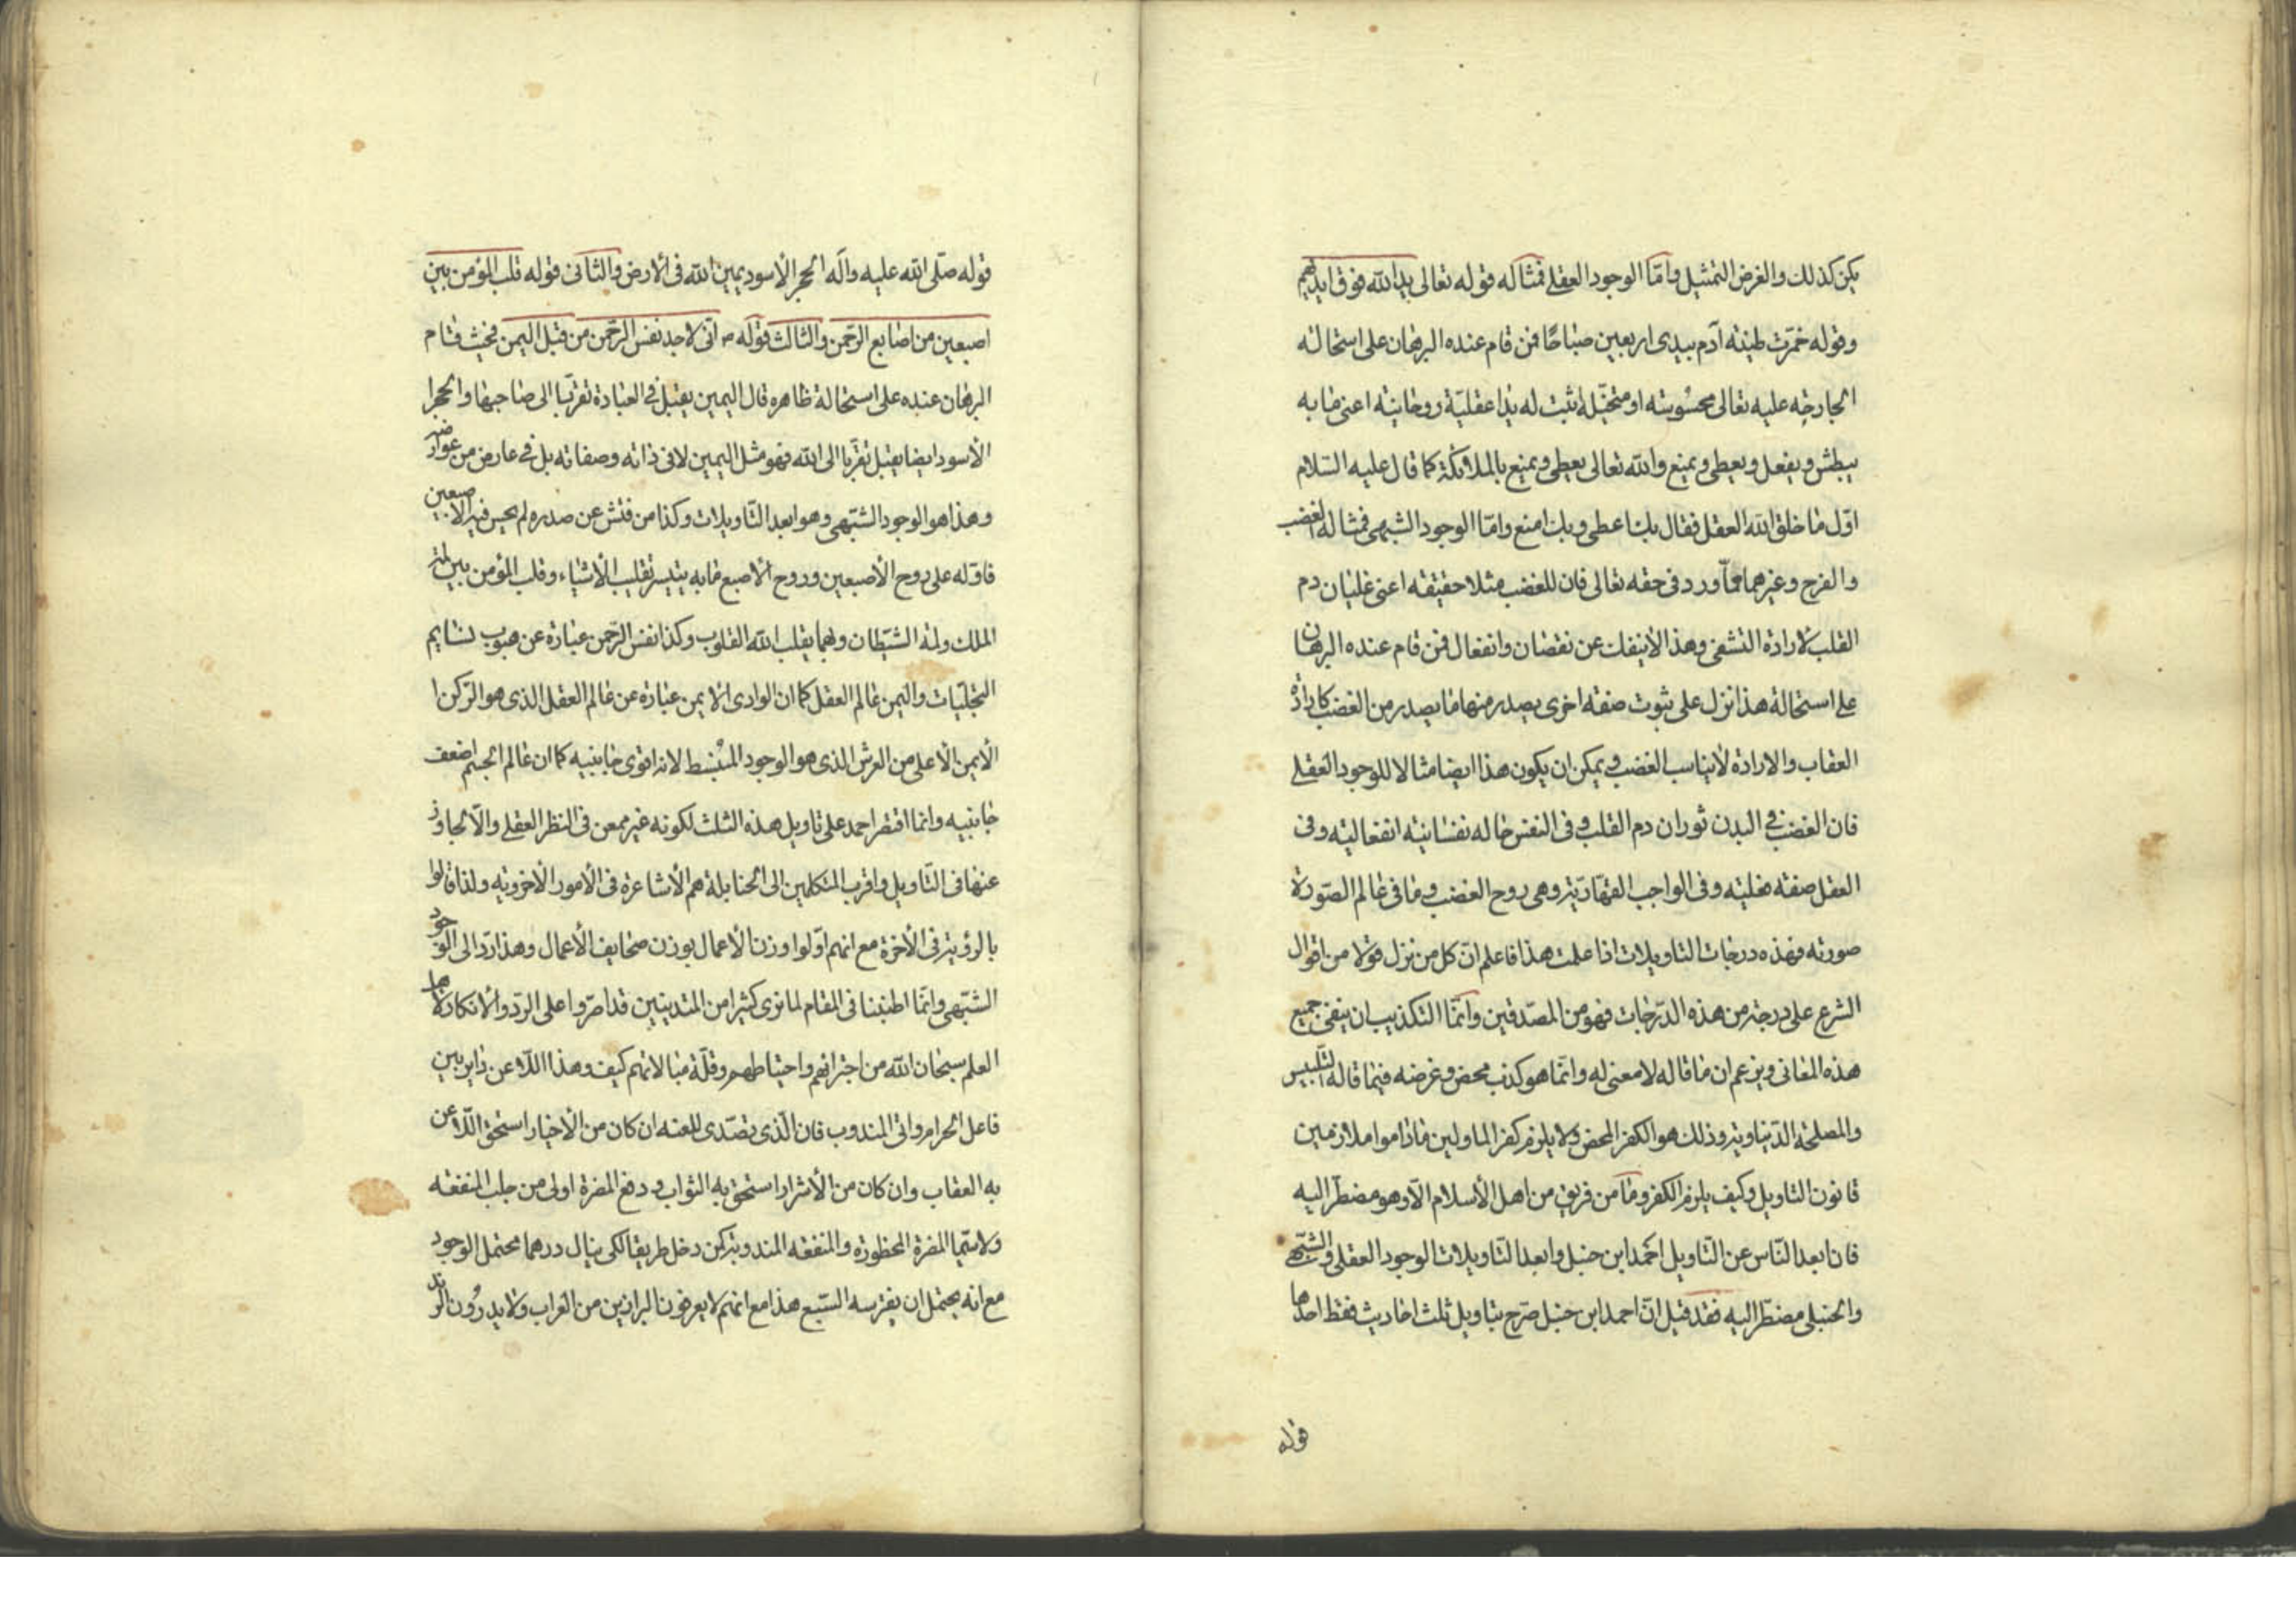 يكن كذلك والغرض التمثيل وامّا الوجود العقلى فمثاله قوله تعالى يد الله فوق ايديهم
وقوله خمّرت طينة آدم بيدى اربعين صباحًا فمن قام عنده البرهان على استحالة
الجارحة عليه تعالى محسوسة او متخيّلة اثبت له يدا عقليّة روحانية اعنى ما به
يبطش ويفعل ويعطى ويمنع والله تعالى يعطى ويمنع بالملائكة كما قال عليه السّلام
اوّل ما خلق الله العقل فقال بك اعطى وبك امنع وامّا الوجود الشبهى فمثاله الغضب
والفرح وغيرهما ممّا ورد فى حقه تعالى فان للغضب مثلا حقيقة اعنى غليان دم
القلب لارادة التشفى وهذا لا ينفك عن نقصان وانفعال فمن قام عنده البرهان
على استحالة هذا نزل على ثبوت صفة اخرى يصدر منها ما يصدر من الغضب كارادة
العقاب والارادة لا يناسب الغضب ويمكن ان يكون هذا ايضا مثالا للوجود العقلى
فان الغضب فى البدن ثوران دم القلب وفى النفس حالة نفسانية انفعالية وفى
العقل صفة عقلية وفى الواجب القهّاريّة وهى روح الغضب وما فى عالم الصّورة
صورته فهذه درجات التاويلات اذا علمت هذا فاعلم انّ كل من نزل قولا من اقوال
الشرع على درجة من هذه الدّرجات فهو من المصدّقين وانّما التكذيب ان ينفى جميع
هذه المعانى ويزعم ان ما قاله لا معنى له وانّما هو كذب محض وغرضه فيما قاله التلبيس
والمصلحة الدّنياوية وذلك هو الكفر المحض ولا يلزم كفر الماولين ماداموا ملازمين
قانون التاويل وكيف يلزم الكفر وما من فريق من اهل الأسلام الّا وهو مضطرّ اليه
فان ابعد النّاس عن التّاويل احمد ابن حنبل وابعد التّاويلات الوجود العقلى والشّبهى
والحنبلى مضطرّ اليه فقد قيل انّ احمد ابن حنبل صرّح بتاويل ثلث احاديث فقط احدها
قوله
قوله صلّى الله عليه وآله الحجر الأسود يمين الله فى الأرض والثانى قوله قلب المؤمن بين
اصبعين من اصابع الرّحمن والثالث قوله ص انّى لاجد نفس الرّحمن من قبل اليمن فحيث قام
البرهان عنده على استحالة ظاهره قال اليمين يقبل فى العبادة تقرّبا الى صاحبها والحجر ا
الأسود ايضا يقبل تقرّبا الى الله فهو مثل اليمين لا فى ذاته وصفاته بل فى عارض من عوارضه
وهذا هو الوجود الشبّهى وهو ابعد التّاويلات وكذا من فتش عن صدره لم يحس فيه الاصبعين
فاوّله على روح الأصبعين وروح الأصبع ما به يتيسر تقليب الأشياء وقلب المؤمن بين لمّة
الملك ولمة الشيّطان وبهما يقلب الله القلوب وكذا نفس الرّحمن عبارة عن هبوب نسايم
التجلّيات واليمن عالم العقل كما ان الوادى الايمن عبارة عن عالم العقل الذى هو الرّكن ا
الأيمن الأعلى من العرش الذى هو الوجود المنبسط لانه اقوى جانبيه كما ان عالم الجسم اضعف
جانبيه وانما اقتصر احمد على تاويل هذه الثلث لكونه غير ممعن فى النظر العقلى والّا لجاوز
عنها فى التّاويل واقرب المتكلمين الى الحنابلة هم الأشاعرة فى الأمور الأخروية ولذا قالوا
بالرؤية فى الأخرة مع انهم اوّلوا وزن الأعمال بوزن صحايف الأعمال وهذا ردّ الى الوجود
الشبّهى وانّما اطنبنا فى المقام لما نرى كثيرا من المتدينين قد اصرّوا على الردّ والأنكار لاهل
العلم سبحان الله من اجترائهم واحتياطهم وقلّة مبالاتهم كيف وهذا اللّاعن داير بين
فاعل الحرام واتى المندوب فان الّذى تصدّى للعنه ان كان من الأخيار استحق اللّاعن
به العقاب وان كان من الأشرار استحق به الثواب ودفع المضرة اولى من جلب المنفعة
ولا سيّما المضرة المحظورة والمنفعة المندوبة كمن دخل طريقا لكى ينال درهما محتمل الوجود
مع انه يحتمل ان يفترسه السّبع هذا مع انهم لا يعرفون البراذين من العراب ولا يدرؤن